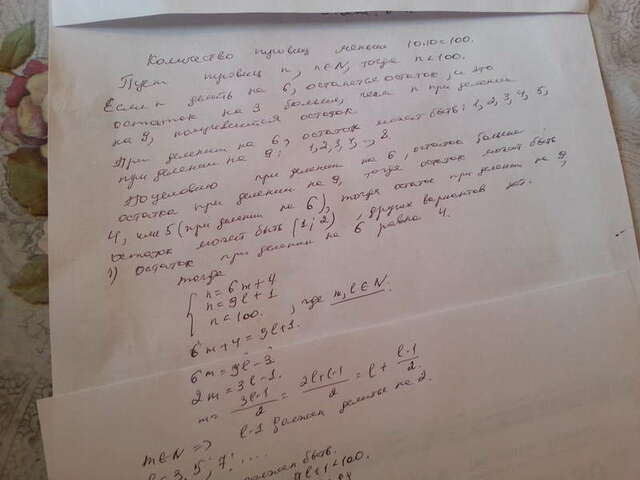 Количество пуговиц меньше 10·10=100.
Пусть пуговиц n, n∈N, тогда n<100.
Если n делить на 6, останется остаток, и это
остаток на 3 больше, чем n при делении
на 9, получившийся остаток.
При делении на 6, остаток может быть: 1, 2, 3, 4, 5,
при делении на 9: 1, 2, 3, 4, ..., 8.
По условию при делении на 6, остаток больше
остатка при делении на 9, тогда остаток может быть
4, или 5 (при делении на 6), тогда остаток при делении на 9,
остаток может быть (1; 2), других вариантов нет.
1) Остаток при делении на 6 равна 4.
тогда
n=6m+4
n=9l+1
n<100. , где m, l∈N.
6m+4=9l+1.
6m=9l-3
2m=3l-1.
m= 3l-1/2 = 2l+l-1/2 = l + l-1/2.
m∈N => l-1 должен делится на 2.
l=3, 5, 7, ....
должен быть.
9l+1<100.